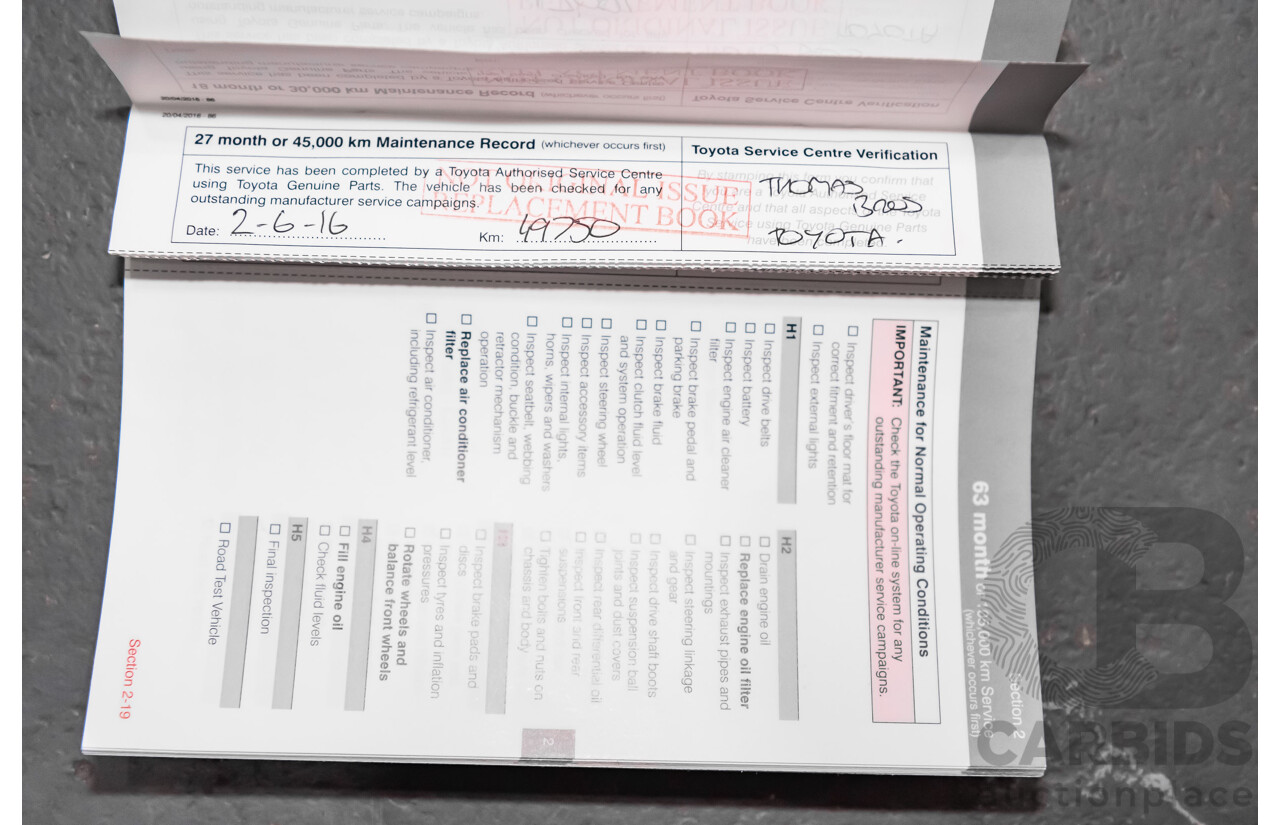 20/04/2018 - 86
27 month or 45,000 km Maintenance Record (whichever occurs first)
This service has been completed by a Toyota Authorised Service Centre
using Toyota Genuine Parts. The vehicle has been checked for any
outstanding manufacturer service campaigns.
Date: 2-6-16 Km: 49750
NOT ORIGINAL ISSUE
REPLACEMENT BOOK
Toyota Service Centre Verification
By stamping this form you confirm that
you are a Toyota Authorised Service
Centre and that all aspects Toyota
Service using Toyota Genuine Parts
have been
THOMAS
BROS
TOYOTA.
18 month or 30,000 km Maintenance Record (whichever occurs first)
Toyota Service Centre Verification
Section 2
63 month 105,000 km Service
(whichever occurs first)
Maintenance for Normal Operating Conditions
IMPORTANT: Check the Toyota on-line system for any
outstanding manufacturer service campaigns.
Inspect driver's floor mat for
correct fitment and retention
Inspect external lights
H1
Inspect drive belts
Inspect battery
Inspect engine air cleaner
filter
Inspect brake pedal and
parking brake
Inspect brake fluid
Inspect clutch fluid level
and system operation
Inspect steering wheel
Inspect accessory items
Inspect internal lights,
horns, wipers and washers
Inspect seatbelt, webbing
condition, buckle and
retractor mechanism
operation
Replace air conditioner
filter
Inspect air conditioner,
including refrigerant level
H2
Drain engine oil
Replace engine oil filter
Inspect exhaust pipes and
mountings
Inspect steering linkage
and gear
Inspect drive shaft boots
Inspect suspension ball
joints and dust covers
Inspect rear differential oil
Inspect front and rear
suspensions
Tighten bolts and nuts on
chassis and body
H3
Inspect brake pads and
discs
Inspect tyres and inflation
pressures
Rotate wheels and
balance front wheels
H4
Fill engine oil
Check fluid levels
H5
Final inspection
Road Test Vehicle
2
Section 2-19
B
CARBIDS
auctionplace